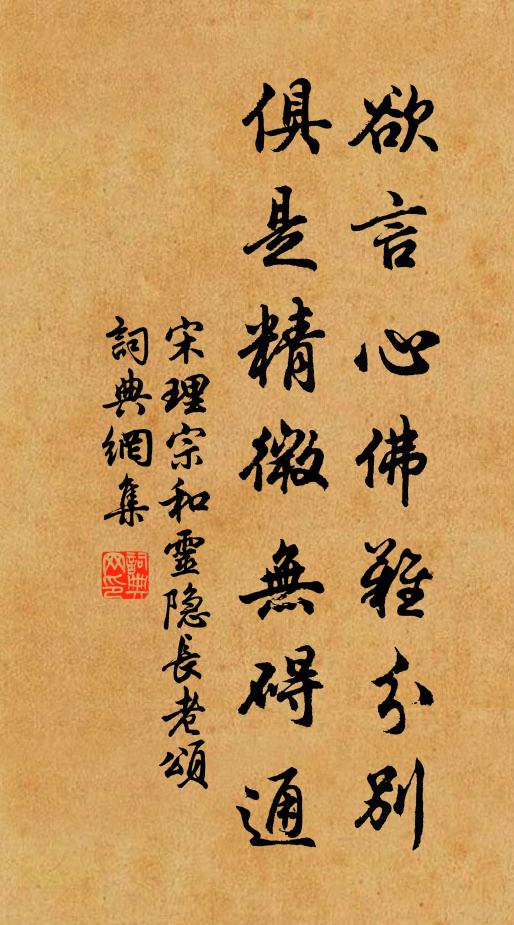 欲言心佛難分別
俱是精微無碍通
宋理宗和靈隐長老頌
詞典網集
詞典網印